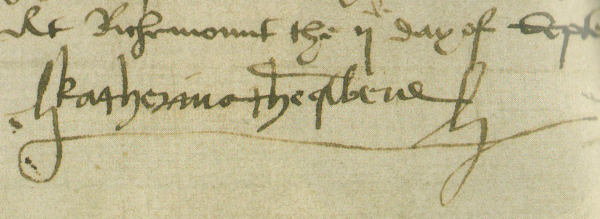 At Richemount the ij day of Septe
Katherina the Qwene